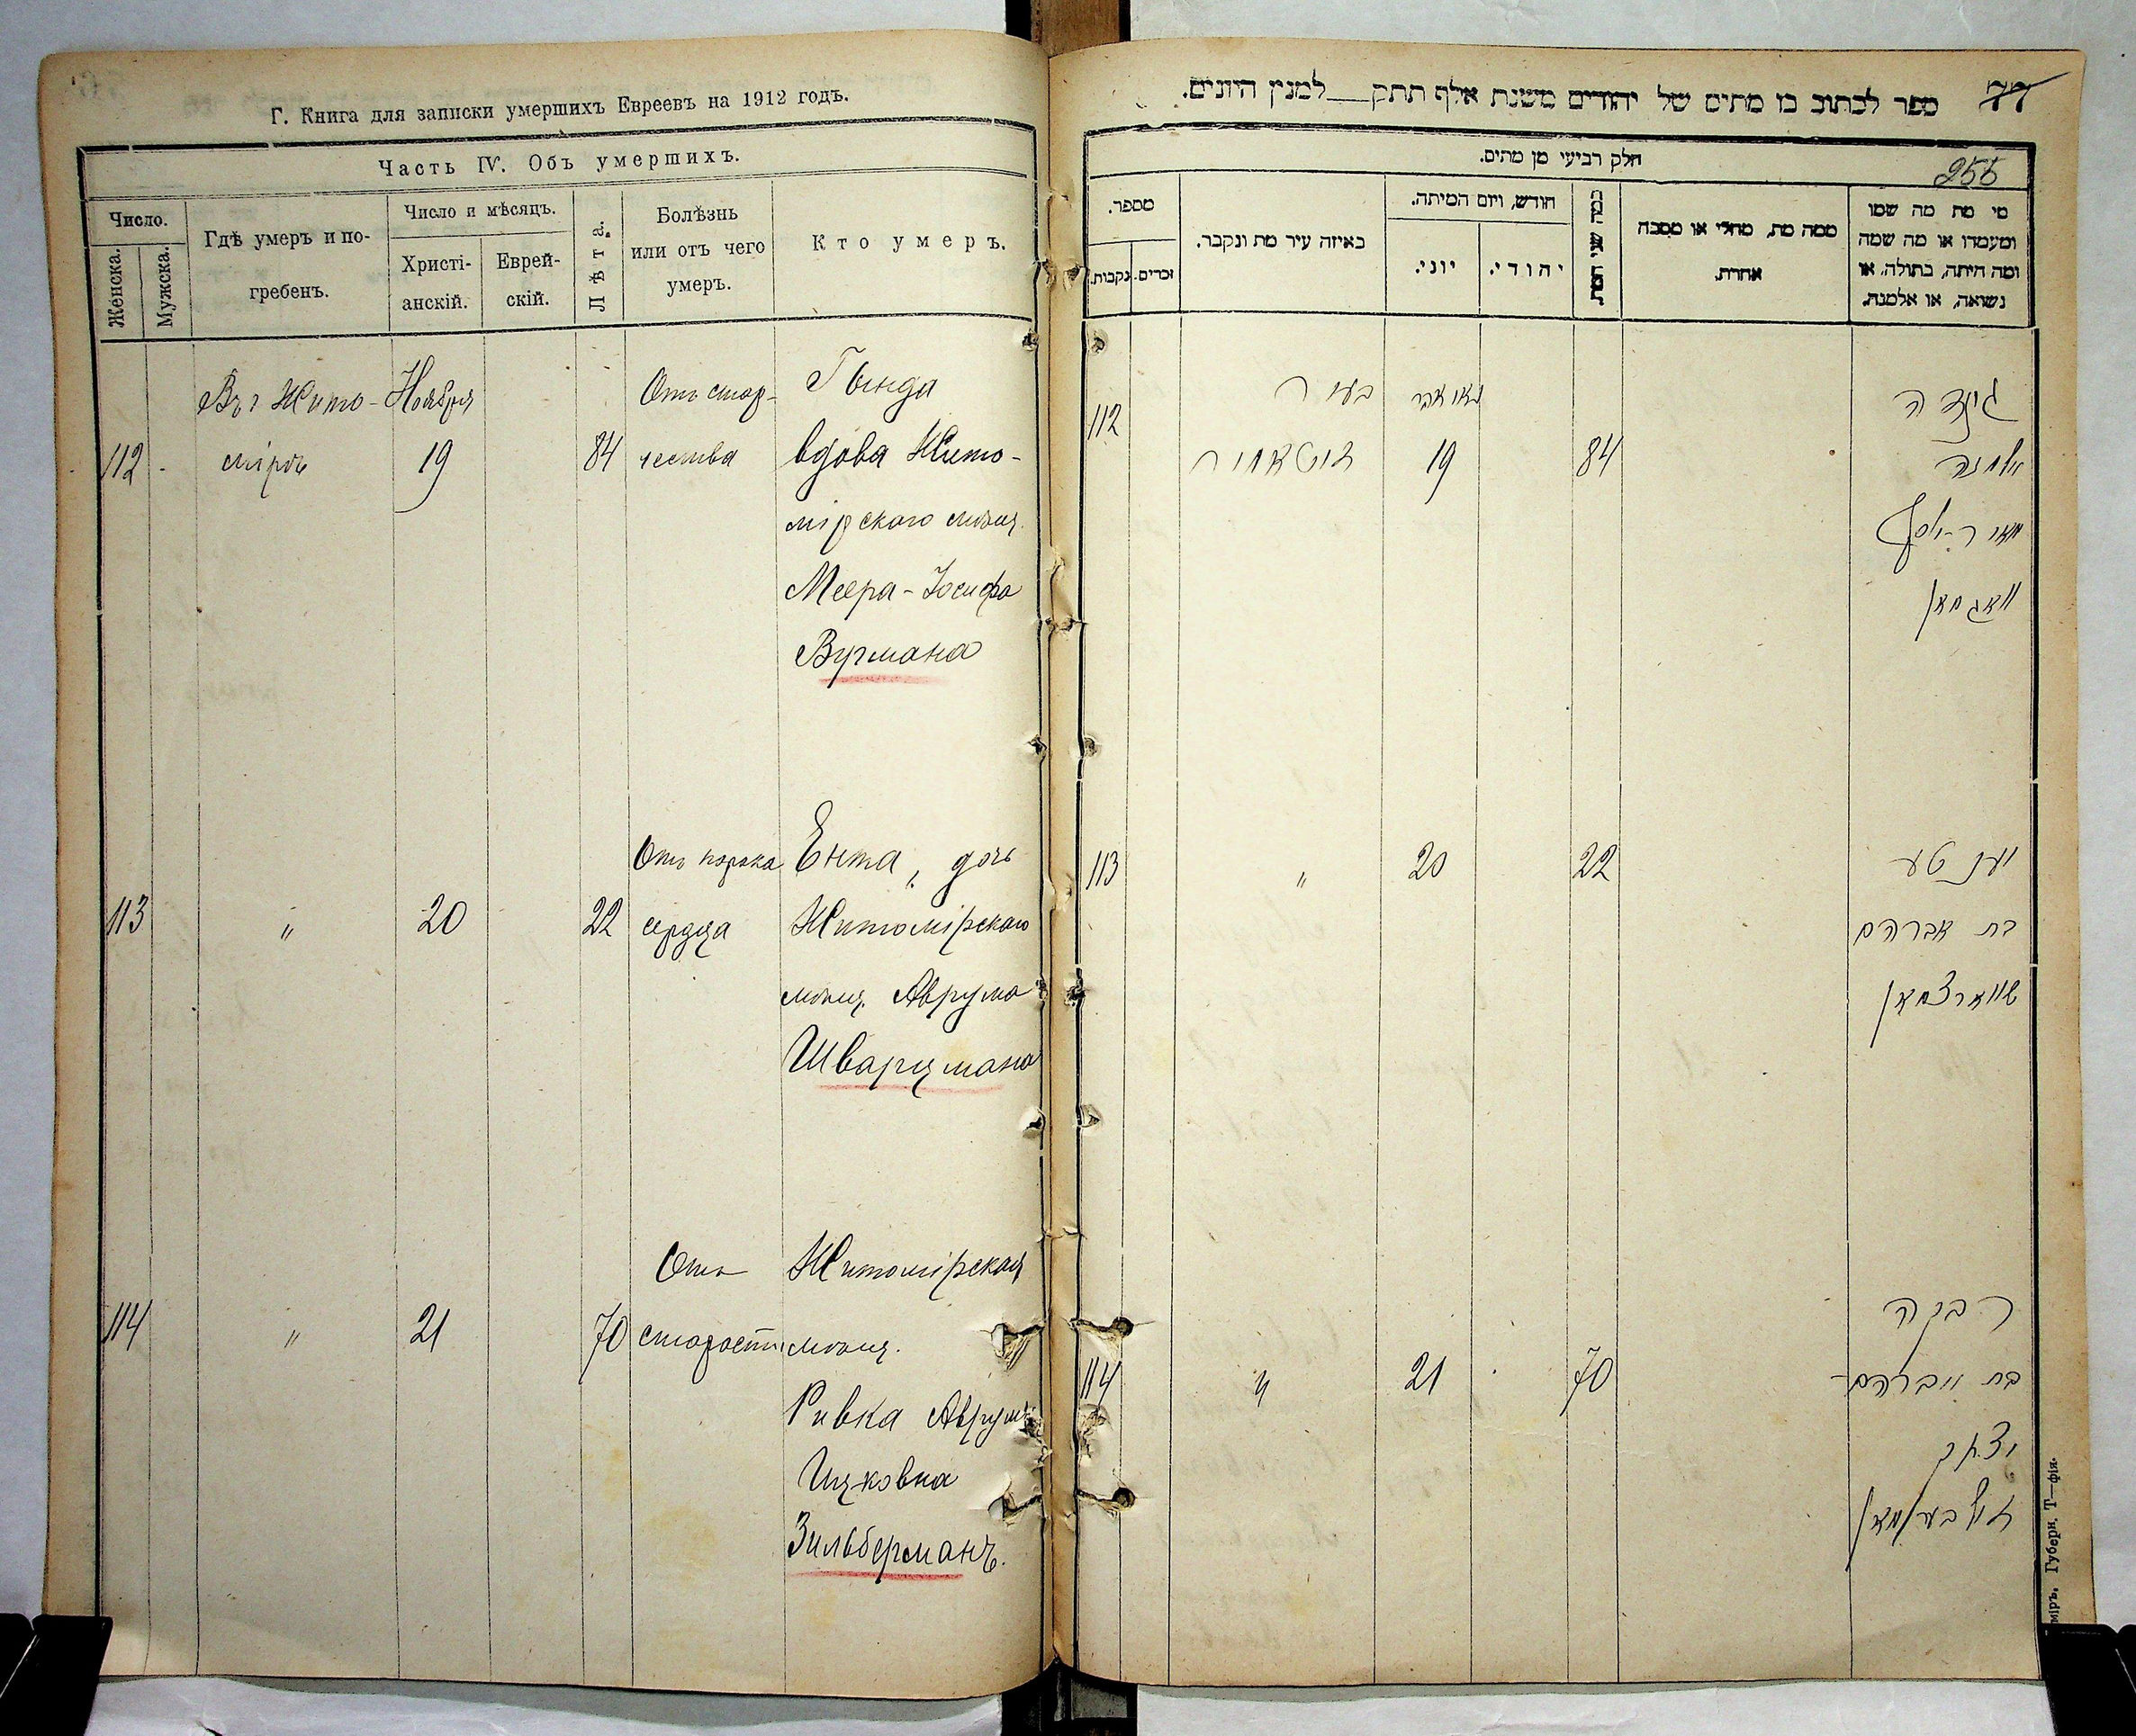 Г. Книга для записки умершихъ Евреевъ на 1912 годъ.
Часть IV. Объ умершихъ.
Число.
Женска.
Мужска.
Гдѣ умеръ и по-
гребенъ.
Число и мѣсяцъ.
Христі-
анскій.
Еврей-
скій.
Лѣта.
Болѣзнь
или отъ чего
умеръ.
Кто умеръ.
112
Въ г Жито-
мірѣ
Ноября
19
84
Отъ стар-
чества
Гинда
вдова Жито-
мірского мѣщ.
Меера-Іосифа
Вугмана
113
"
20
22
Отъ порока
сердца
Ента, дочь
Житомірскаго
мѣщ. Аврума
Шварцмана
114
"
21
70
Отъ
старости
Житомірская
мѣщ.
Ривка Аврумъ
Ицковна
Зильберманъ.
77
ספר לכתוב בו מתים של יהודים משנת אלף תתק למנין היונים.
חלק רביעי מן מתים.
255
מספר.
נקבות.
זכרים.
באיזה עיר מת ונקבר.
חודש, ויום המיתה.
יוני.
יהודי.
כמה שני המת.
ממה מת, מחלי או מסבה
אחרת.
מי מת מה שמו
ומעמדו או מה שמה
ומה היתה, בתולה, או
נשואה, או אלמנה.
112
בעיר
זיטאמיר
נאיאבר
19
84
גינדה
אלמנה
מאיר-יוסף
וואגמאן
113
"
20
22
יענטע
בת אברהם
שווארצמאן
114
"
21
70
רבקה
בת אברהם-
יצחק
זילבערמאן
міръ, Губерн. Т—фія.